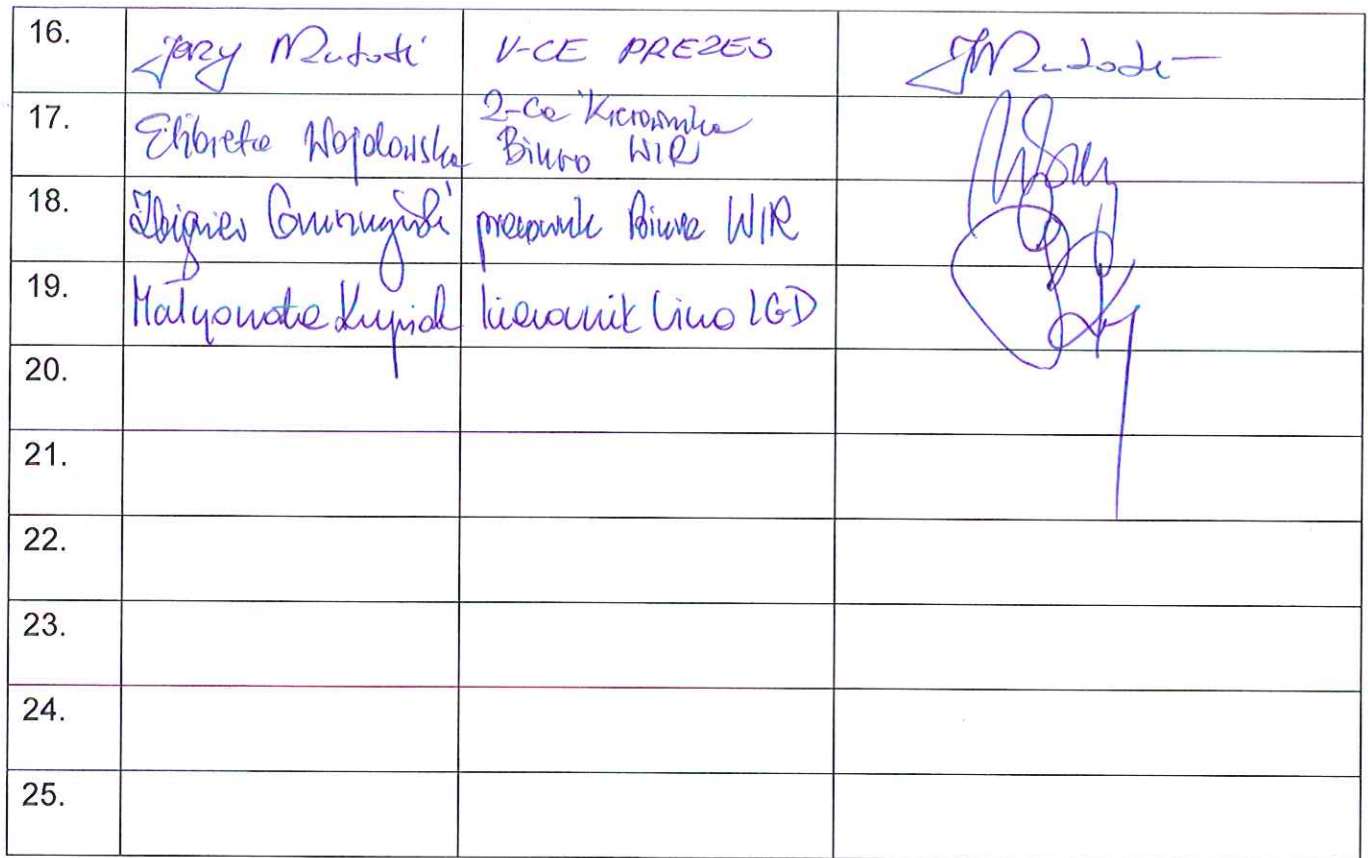 16. Jerzy V-CE PREZES
17. Elżbieta Wojdowska Z-Ca Kierownika
Biura WIR
18. Zbigniew pracownik Biura WIR
19. Małgorzata kierownik biura LGD
20.
21.
22.
23.
24.
25.